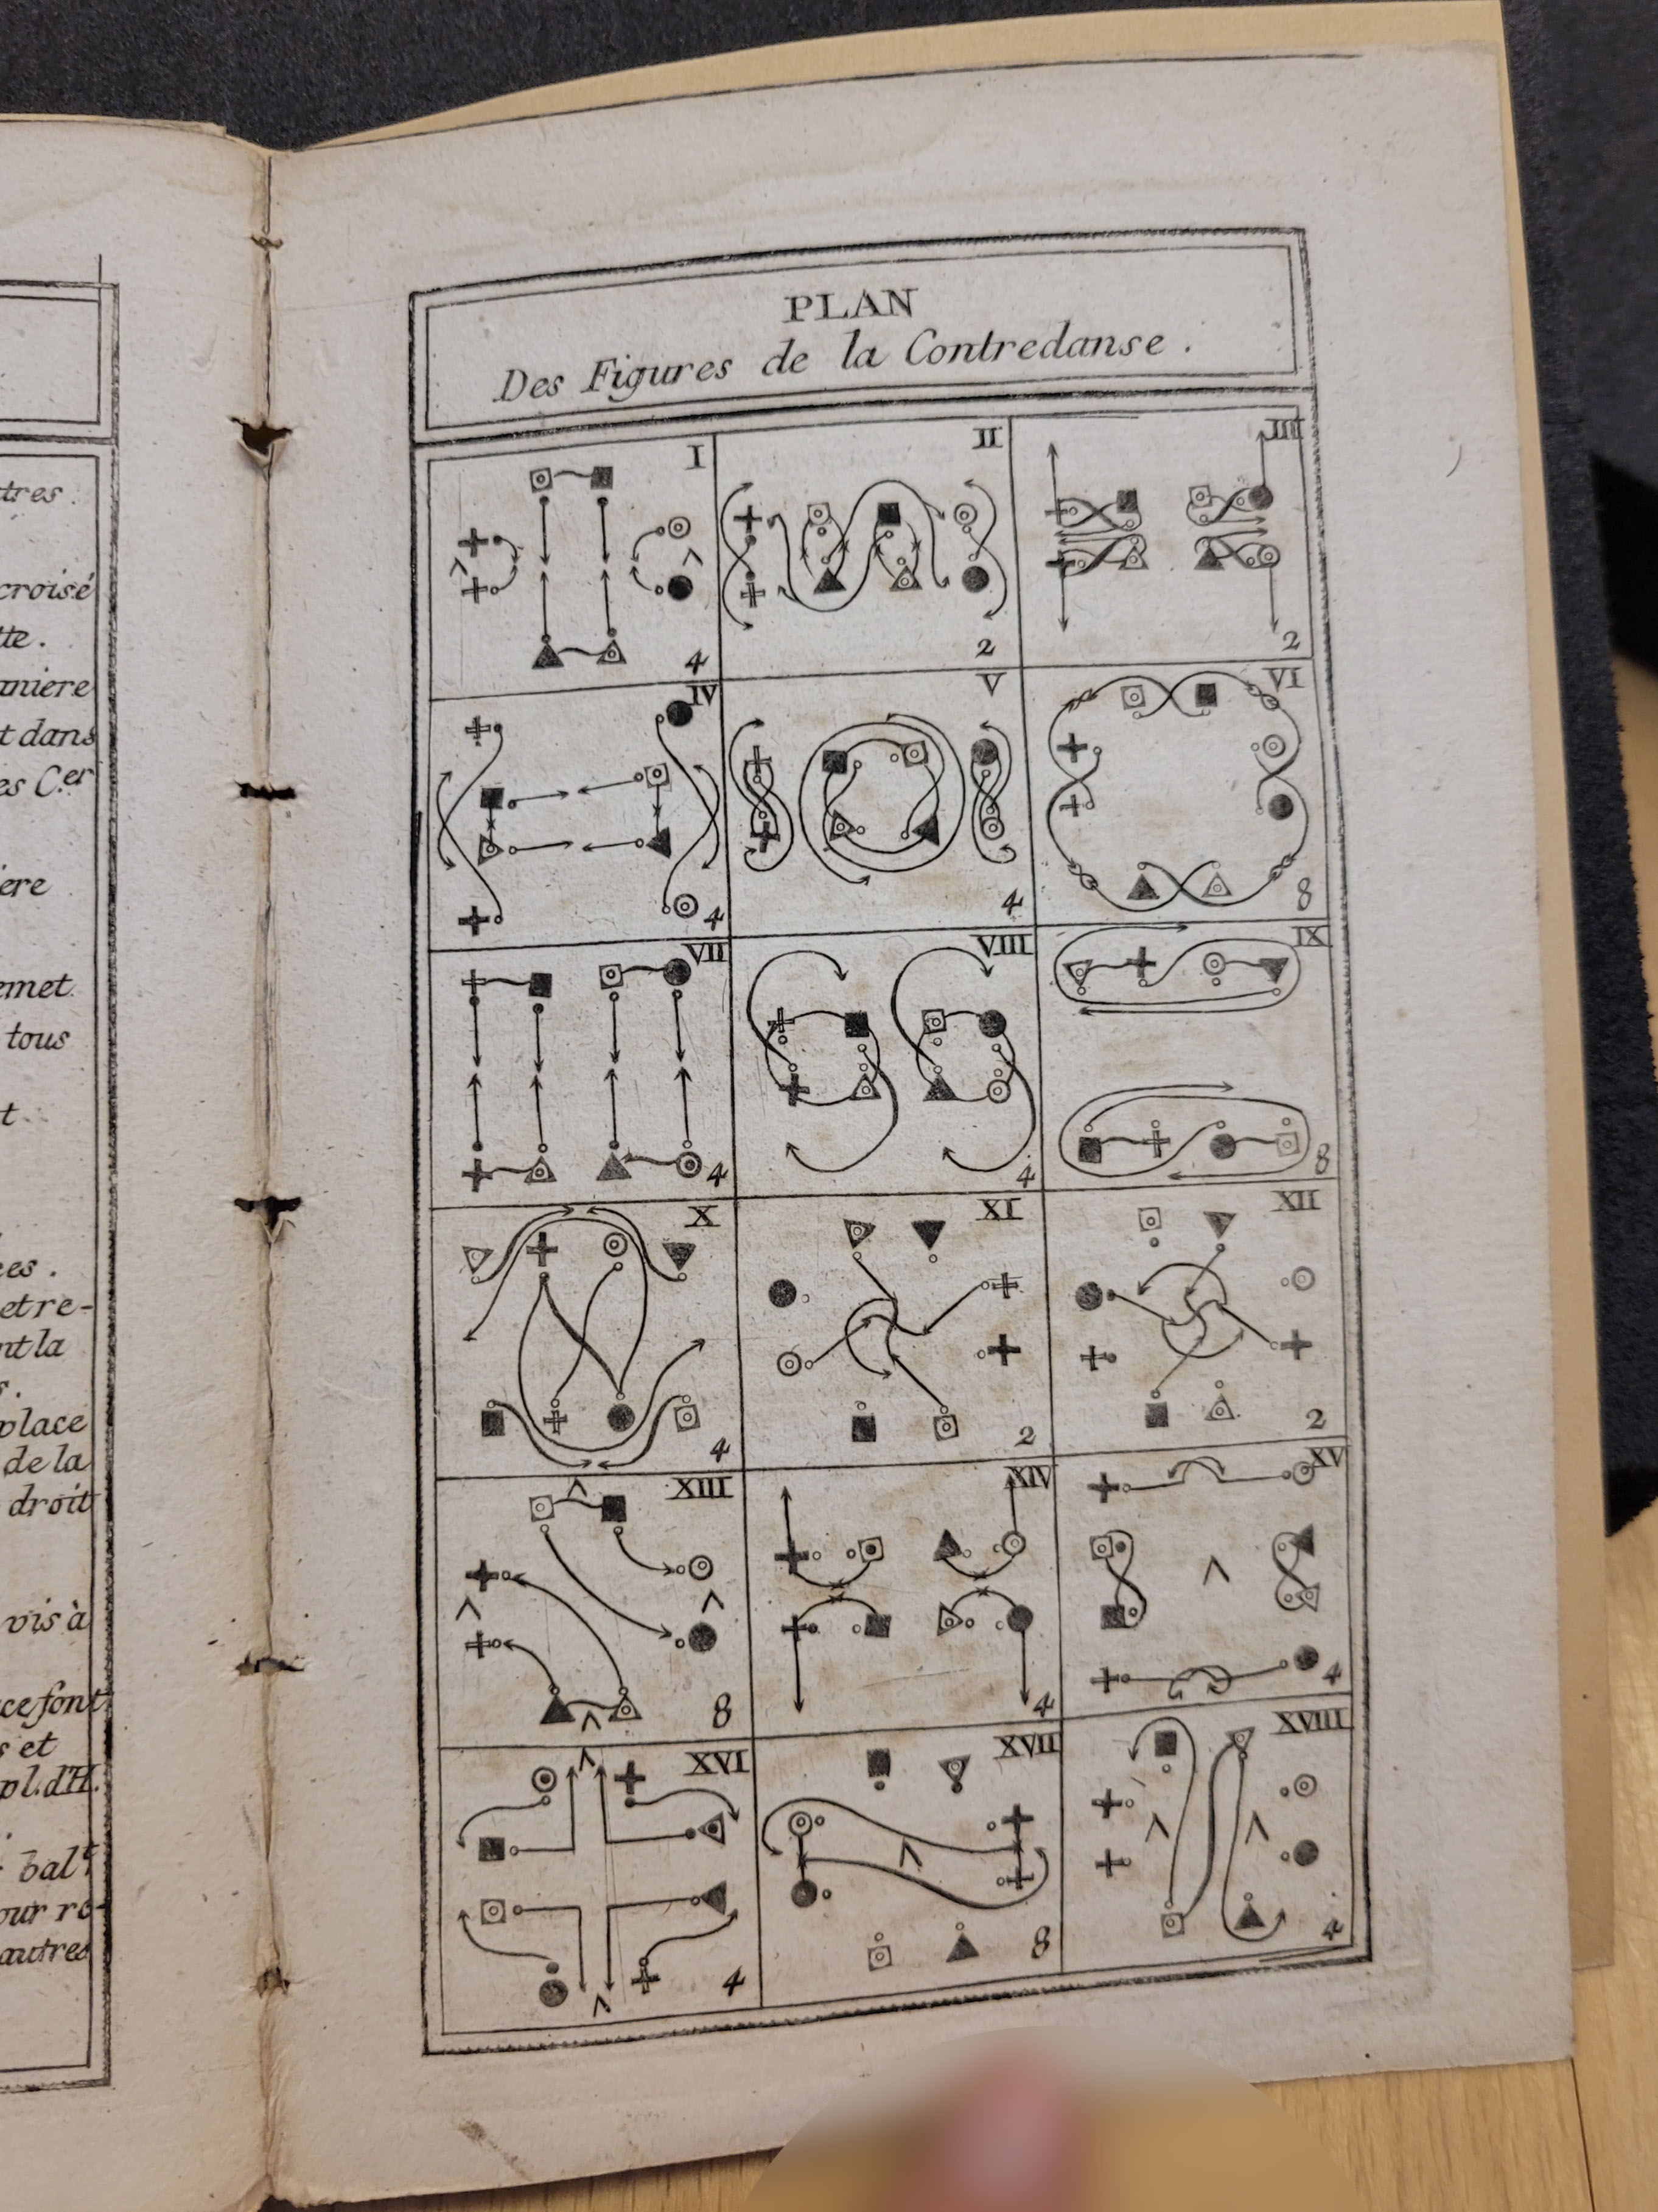 tres.
croisé
tte.
aniere
t dans
es C.er
iere
emet
tous
t.
ces.
et re-
nt la
s.
place
de la
droit
vis à
ce font
s et
pl. d'H.
bal.t
our re-
autres
PLAN
Des Figures de la Contredanse.
I
4
II
2
III
2
IV
4
V
4
VI
8
VII
4
VIII
4
IX
8
X
4
XI
2
XII
2
XIII
8
XIV
4
XV
4
XVI
4
XVII
8
XVIII
4